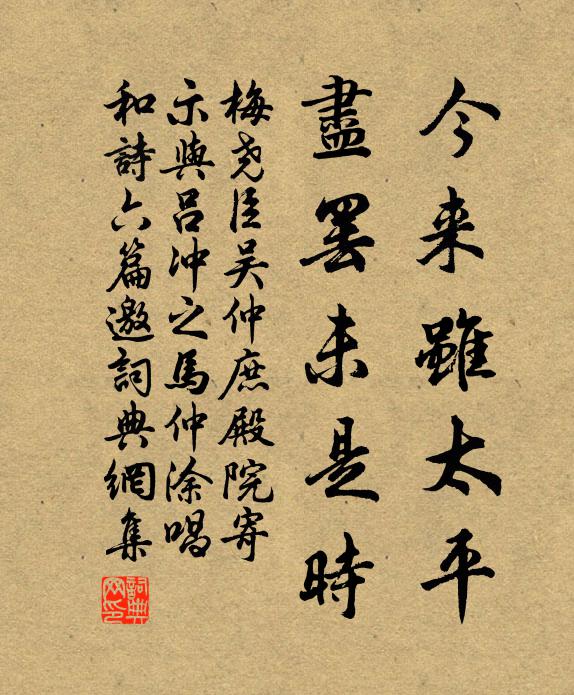 今来雖太平
盡罷未是時
梅尧臣吴仲庶殿院寄
示與吕冲之馬仲涂唱
和詩六篇邀詞典網集
詞典
网印